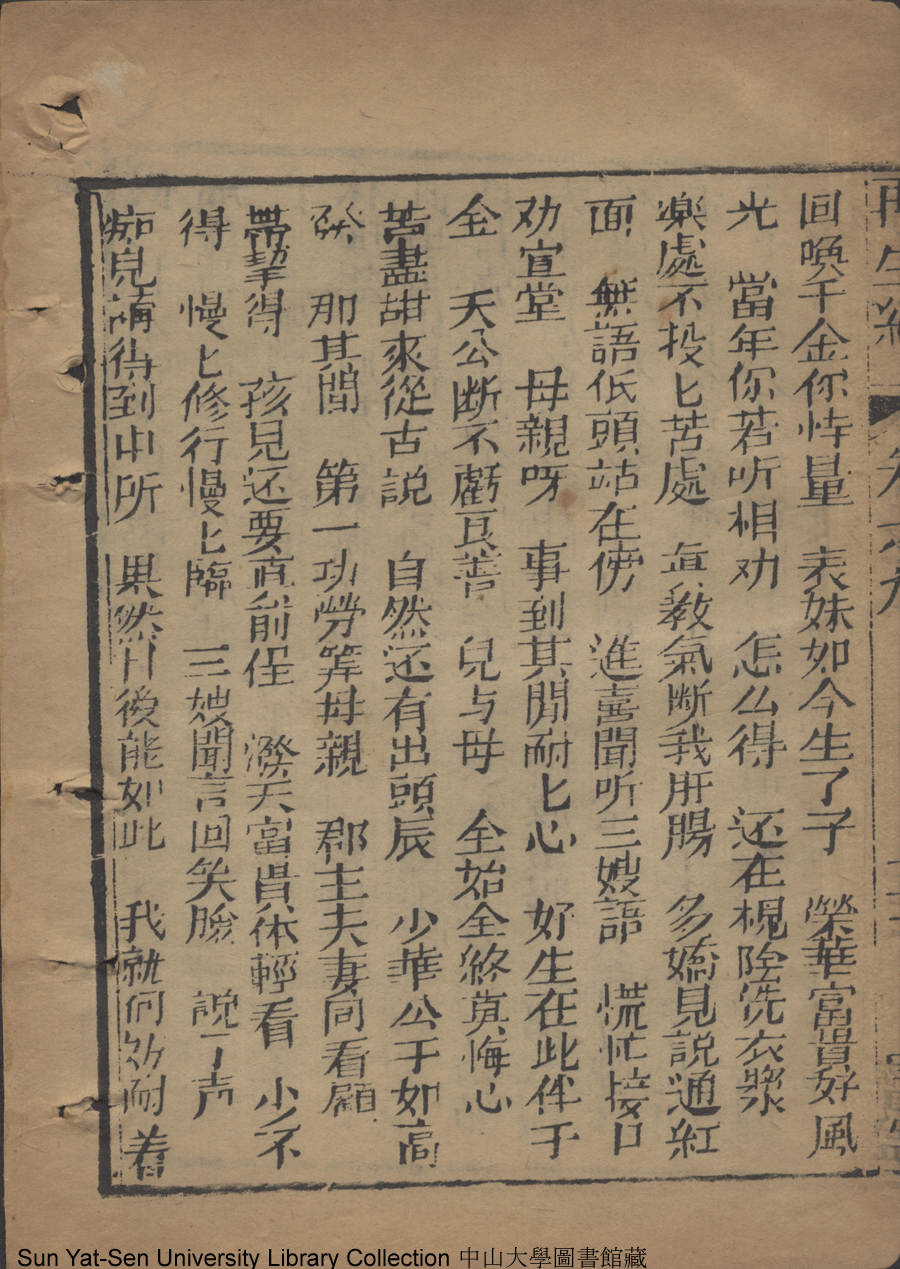 再生緣 卷六九
回喚千金你忖量 表妹如今生了子 榮華富貴好風
光 當年你若听相劝 怎么得 还在槐陰洗衣漿
樂處不投匕苦處 真教氣断我肝腸 多嬌見說通紅
面 無語低頭站在傍 進喜聞听三嫂語 慌忙接口
劝宣堂 母親呀 事到其間耐匕心 好生在此伴于
全 天公断不虧良善 兒与母 全始全終莫悔心
苦盡甜來從古說 自然还有出頭辰 少華公子如高
發 那其間 第一功勞筭母親 郡主夫妻同看顧
帶挈得 孩兒还要奔前程 潑天富貴休輕看 少不
得 慢匕修行慢匕臨 三嫂聞言回笑臉 說了声
痴兒講得到中所 果然日後能如此 我就何妨耐着
Sun Yat-Sen University Library Collection 中山大學圖書館藏